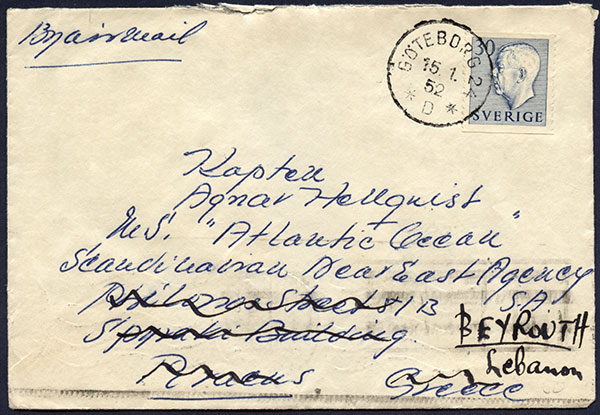 By airmail
GÖTEBORG 2
15. 1.
52
* D *
30
SVERIGE
Kapten
Agnar Hellquist
M.S. "Atlantic Ocean"
Scandinavian Near East Agency
Street 81B S.A.
Building
Piraeus Greece
BEYROUTH
Lebanon